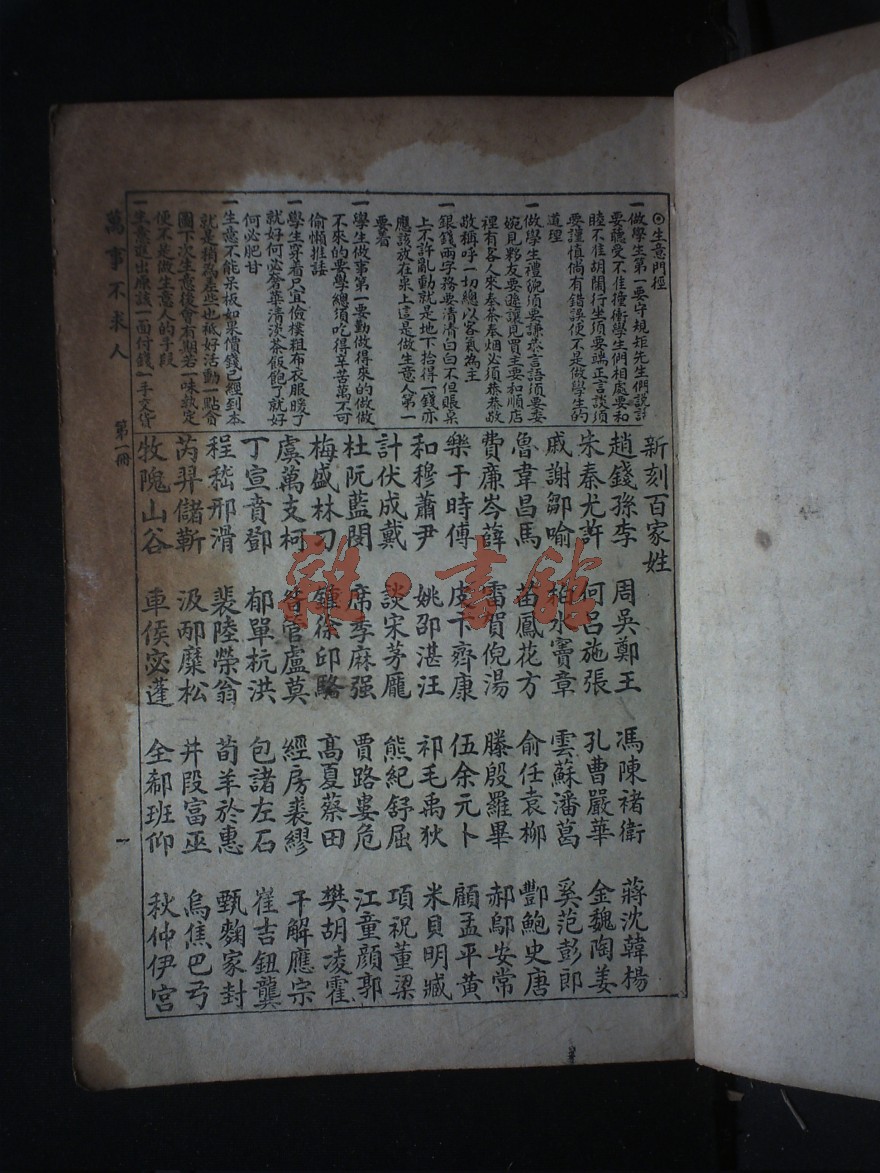 ◎生意門徑
一做學生第一要守規矩先生們說話
要聽受不准撞衝學生們相處要和
睦不准胡鬧行坐須要端正言談須
要謹慎倘有錯誤便不是做學生的
道理
一做學生禮貌須要謙恭言語須要委
婉見夥友要遜讓見買主要和順店
裡有客人來奉茶奉烟必須恭恭敬
敬稱呼一切總以客氣為主
一銀錢兩字務要清清白白不但賬桌
上不許亂動就是地下拾得一錢亦
應該放在桌上這是做生意人第一
要着
一學生做事第一要勤做得來的做做
不來的要學總須吃得辛苦萬不可
偷懶推諉
一學生穿着只宜儉樸粗布衣服暖了
就好何必奢華清淡茶飯飽了就好
何必肥甘
一生意不能呆板如果價錢已經到本
就是稍為差些也祇好活動一點會
圖下次生意後會有期若一味執定
便不是做生意人的手段
一生意進出應該一面付錢一手交貨
新刻百家姓
趙錢孫李 周吳鄭王 馮陳褚衛 蔣沈韓楊
朱秦尤許 何呂施張 孔曹嚴華 金魏陶姜
戚謝鄒喻 柏水竇章 雲蘇潘葛 奚范彭郎
魯韋昌馬 苗鳳花方 俞任袁柳 酆鮑史唐
費廉岑薛 雷賀倪湯 滕殷羅畢 郝鄔安常
樂于時傅 皮卞齊康 伍余元卜 顧孟平黃
和穆蕭尹 姚邵湛汪 祁毛禹狄 米貝明臧
計伏成戴 談宋茅龐 熊紀舒屈 項祝董梁
杜阮藍閔 席季麻强 賈路婁危 江童顏郭
梅盛林刁 鍾徐邱駱 高夏蔡田 樊胡凌霍
虞萬支柯 昝管盧莫 經房裘繆 干解應宗
丁宣賁鄧 郁單杭洪 包諸左石 崔吉鈕龔
程嵇邢滑 裴陸榮翁 荀羊於惠 甄麴家封
芮羿儲靳 汲邴糜松 井段富巫 烏焦巴弓
牧隗山谷 車侯宓蓬 全郗班仰 秋仲伊宮
萬事不求人 第一冊 一
雜·書館